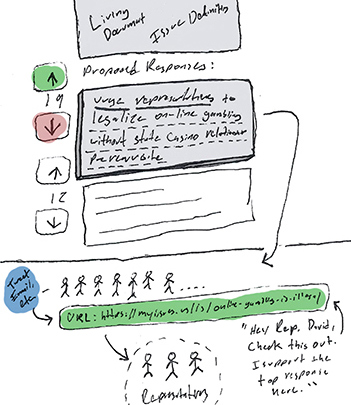 Living
Document
Issue Definition
Proposed Responses:
19
Urge representatives to
legalize on-line gambling
without state Casino relationship
Prerequisite
12
Tweet
Email,
etc
URL: https://myissues.us/is/online-gambling-is-illegal
"Hey Rep. David,
Check this out.
I support the
top response
here."
Representatives